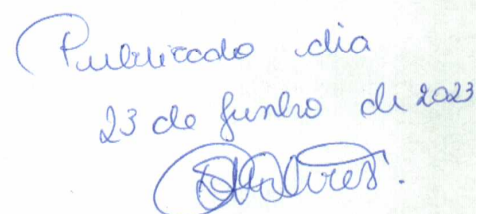 Publicado dia
23 de Junho de 2023